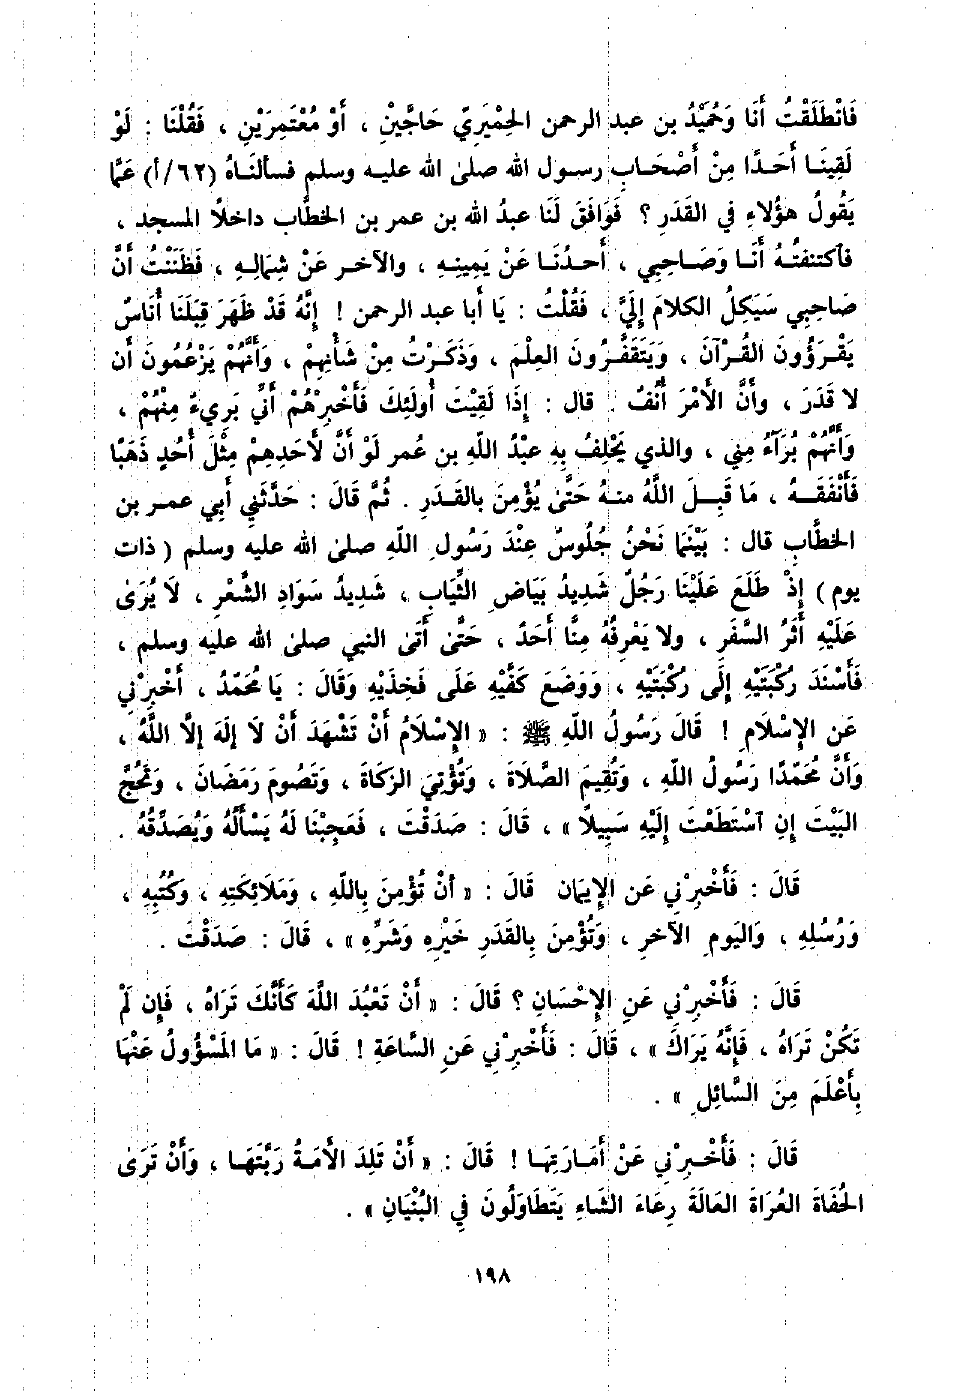 فَانْطَلَقْتُ أَنَا وَحُمَيْدُ بن عبد الرحمن الحِمْيَرِيّ حَاجَّيْنِ ، أَوْ مُعْتَمِرَيْنِ ، فَقُلْنَا : لَوْ
لَقِينَا أَحَدًا مِنْ أَصْحَابِ رسول الله صلى الله عليه وسلم فسألنَاهُ (٦٢/أ) عَمَّا
يَقُولُ هؤُلاءِ في القَدَرِ ؟ فَوَافَقَ لَنَا عبدُ الله بن عمر بن الخطَّاب داخلًا المسجد ،
فاكتنفتُهُ أَنَا وَصَاحِبِي ، أَحدُنَا عَنْ يَمِينِهِ ، والآخر عَنْ شِمَالِهِ ، فَظَنَنْتُ أَنَّ
صَاحِبِي سَيَكِلُ الكلامَ إِلَيَّ ، فَقُلْتُ : يَا أَبا عبد الرحمن ! إِنَّهُ قَدْ ظَهَرَ قِبَلَنَا أُنَاسٌ
يَقْرَؤُونَ القُرْآنَ ، وَيَتَقَفَّرُونَ العِلْمَ ، وَذَكَرْتُ مِنْ شَأْنِهِمْ ، وَأَنَّهُمْ يَزْعُمُونَ أَن
لا قَدَرَ ، وأَنَّ الأَمْرَ أُنُفٌ . قال : إِذَا لَقِيْتَ أُولَئِكَ فَأَخْبِرْهُمْ أَنِّي بَرِيءٌ مِنْهُمْ ،
وَأَنَّهُمْ بُرَآءُ مِنِي ، والذي يَحْلِفُ بِهِ عبْدُ اللهِ بن عُمر لَوْ أَنَّ لأَحدِهِمْ مِثْلَ أُحُدٍ ذَهَبًا
فَأَنْفَقَهُ ، مَا قَبِلَ اللَّهُ منهُ حَتَّى يُؤْمِنَ بالقَدَرِ . ثُمَّ قَالَ : حَدَّثَنِي أَبِي عمر بن
الخطَّابِ قال : بَيْنَمَا نَحْنُ جُلُوسٌ عِنْدَ رَسُولِ اللهِ صلى الله عليه وسلم ( ذات
يوم ) إِذْ طَلَعَ عَلَيْنَا رَجُلٌ شَدِيدُ بَيَاضِ الثِّيَابِ ، شَدِيدُ سَوَادِ الشَّعْرِ ، لاَ يُرَى
عَلَيْهِ أَثَرُ السَّفَرِ ، ولا يَعْرِفُهُ مِنَّا أَحَدٌ ، حَتَّى أَتَى النبي صلى الله عليه وسلم ،
فَأَسْنَدَ رُكْبَتَيْهِ إِلَى رُكْبَتَيْهِ ، وَوَضَعَ كَفَّيْهِ عَلَى فَخِذَيْهِ وَقَالَ : يَا مُحَمَّدُ ، أَخْبِرْنِي
عَنِ الإِسْلَامِ ! قَالَ رَسُولُ اللهِ ﷺ : « الإِسْلَامُ أَنْ تَشْهَدَ أَنْ لَا إِلَهَ إِلَّا اللَّهُ ،
وَأَنَّ مُحَمَّدًا رَسُولُ اللهِ ، وَتُقِيمَ الصَّلَاةَ ، وَتُؤْتِيَ الزَّكَاةَ ، وَتَصُومَ رَمَضَانَ ، وَتَحُجَّ
البَيْتَ إِنِ اسْتَطَعْتَ إِلَيْهِ سَبِيلًا » ، قَالَ : صَدَقْتَ ، فَعَجِبْنَا لَهُ يَسْأَلُهُ وَيُصَدِّقُهُ .
قَالَ : فَأَخْبِرْنِي عَنِ الإِيمَانِ قَالَ : « أَنْ تُؤْمِنَ بِاللهِ ، وَمَلَائِكَتِهِ ، وَكُتُبِهِ ،
وَرُسُلِهِ ، وَاليَومِ الآخرِ ، وَتُؤْمِنَ بِالقَدَرِ خَيْرِهِ وَشَرِّهِ » ، قَالَ : صَدَقْتَ .
قَالَ : فَأَخْبِرْنِي عَنِ الإِحْسَانِ ؟ قَالَ : « أَنْ تَعْبُدَ اللَّهَ كَأَنَّكَ تَرَاهُ ، فَإِن لَمْ
تَكُنْ تَرَاهُ ، فَإِنَّهُ يَرَاكَ » ، قَالَ : فَأَخْبِرْنِي عَنِ السَّاعَةِ ! قَالَ : « مَا المَسْؤُولُ عَنْهَا
بِأَعْلَمَ مِنَ السَّائِلِ » .
قَالَ : فَأَخْبِرْنِي عَنْ أَمَارَتِهَا ! قَالَ : « أَنْ تَلِدَ الأَمَةُ رَبَّتَهَا ، وَأَنْ تَرَى
الحُفَاةَ العُرَاةَ العَالَةَ رِعَاءَ الشَّاءِ يَتَطَاوَلُونَ فِي البُنْيَانِ » .
١٩٨